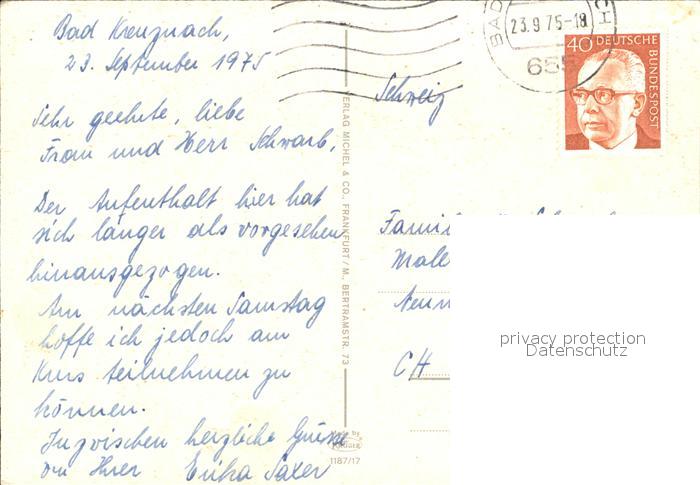 Bad Kreuznach,
23. September 1975
Sehr geehrte, liebe
Frau und Herr Schwarb,
Der Aufenthalt hier hat
sich länger als vorgesehen
hinausgezogen.
Am nächsten Samstag
hoffe ich jedoch am
Kurs teilnehmen zu
können.
Inzwischen herzliche Grüsse
von Ihrer Erika Saxer
VERLAG MICHEL & CO., FRANKFURT/M., BERTRAMSTR. 73
1187/17
BAD
23.9.75-18
655
40 DEUTSCHE
BUNDESPOST
Schweiz
Famili
Male
CH
privacy protection
Datenschutz